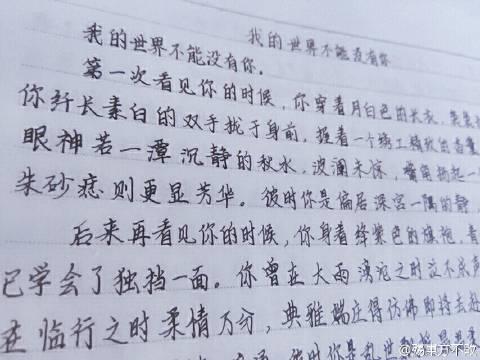 我的世界不能没有你
我的世界不能没有你。
第一次看见你的时候，你穿着月白色的长衣，
你纤长素白的双手拢于身前，握着一个精工精致的香
眼神若一潭沉静的秋水，波澜未惊，嘴角扬起一
朱砂痣则更显芳华。彼时你是偏居深宫一隅的静，
后来再看见你的时候，你身着绛紫色的旗袍，青
已学会了独挡一面。你曾在大雨滂沱之时立不求声
在临行之时柔情万分，典雅端庄得仿佛即将去赴